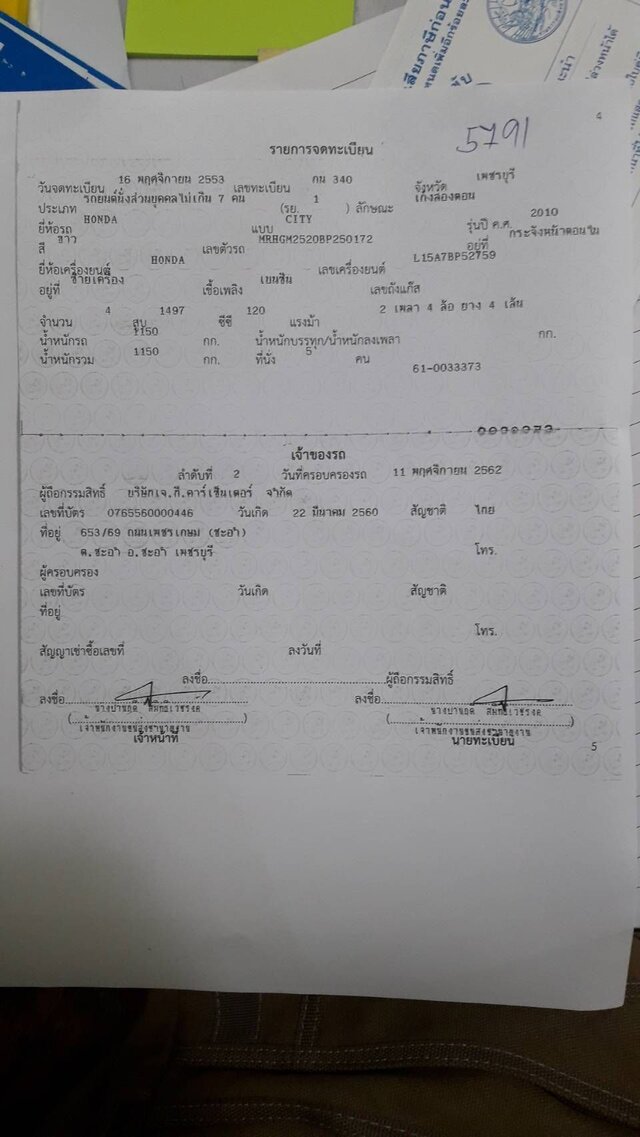 สียภาษีก่อน
4
5791
รายการจดทะเบียน
วันจดทะเบียน 16 พฤศจิกายน 2553 เลขทะเบียน กน 340 จังหวัด เพชรบุรี
ประเภท รถยนต์นั่งส่วนบุคคลไม่เกิน 7 คน (รย. 1 ) ลักษณะ เก๋งสองตอน
ยี่ห้อรถ HONDA แบบ CITY รุ่นปี ค.ศ. 2010
สี ขาว เลขตัวรถ MRHGM2520BP250172 อยู่ที่ กระจังหน้าตอนใน
ยี่ห้อเครื่องยนต์ HONDA เลขเครื่องยนต์ L15A7BP52759
อยู่ที่ ซ้ายเครื่อง เชื้อเพลิง เบนซิน เลขถังแก๊ส
จำนวน 4 สูบ 1497 ซีซี 120 แรงม้า 2 เพลา 4 ล้อ ยาง 4 เส้น
น้ำหนักรถ 1150 กก. น้ำหนักบรรทุก/น้ำหนักลงเพลา กก.
น้ำหนักรวม 1150 กก. ที่นั่ง 5 คน
61-0033373
เจ้าของรถ
ลำดับที่ 2 วันที่ครอบครองรถ 11 พฤศจิกายน 2562
ผู้ถือกรรมสิทธิ์ บริษัทเจ.ที.คาร์เซ็นเตอร์ จำกัด
เลขที่บัตร 0765560000446 วันเกิด 22 มีนาคม 2560 สัญชาติ ไทย
ที่อยู่ 653/69 ถนนเพชรเกษม (ชะอำ)
ต.ชะอำ อ.ชะอำ เพชรบุรี โทร.
ผู้ครอบครอง
เลขที่บัตร วันเกิด สัญชาติ
ที่อยู่
โทร.
สัญญาเช่าซื้อเลขที่ ลงวันที่
ลงชื่อ ผู้ถือกรรมสิทธิ์
ลงชื่อ ลงชื่อ
เจ้าหน้าที่ นายทะเบียน
5